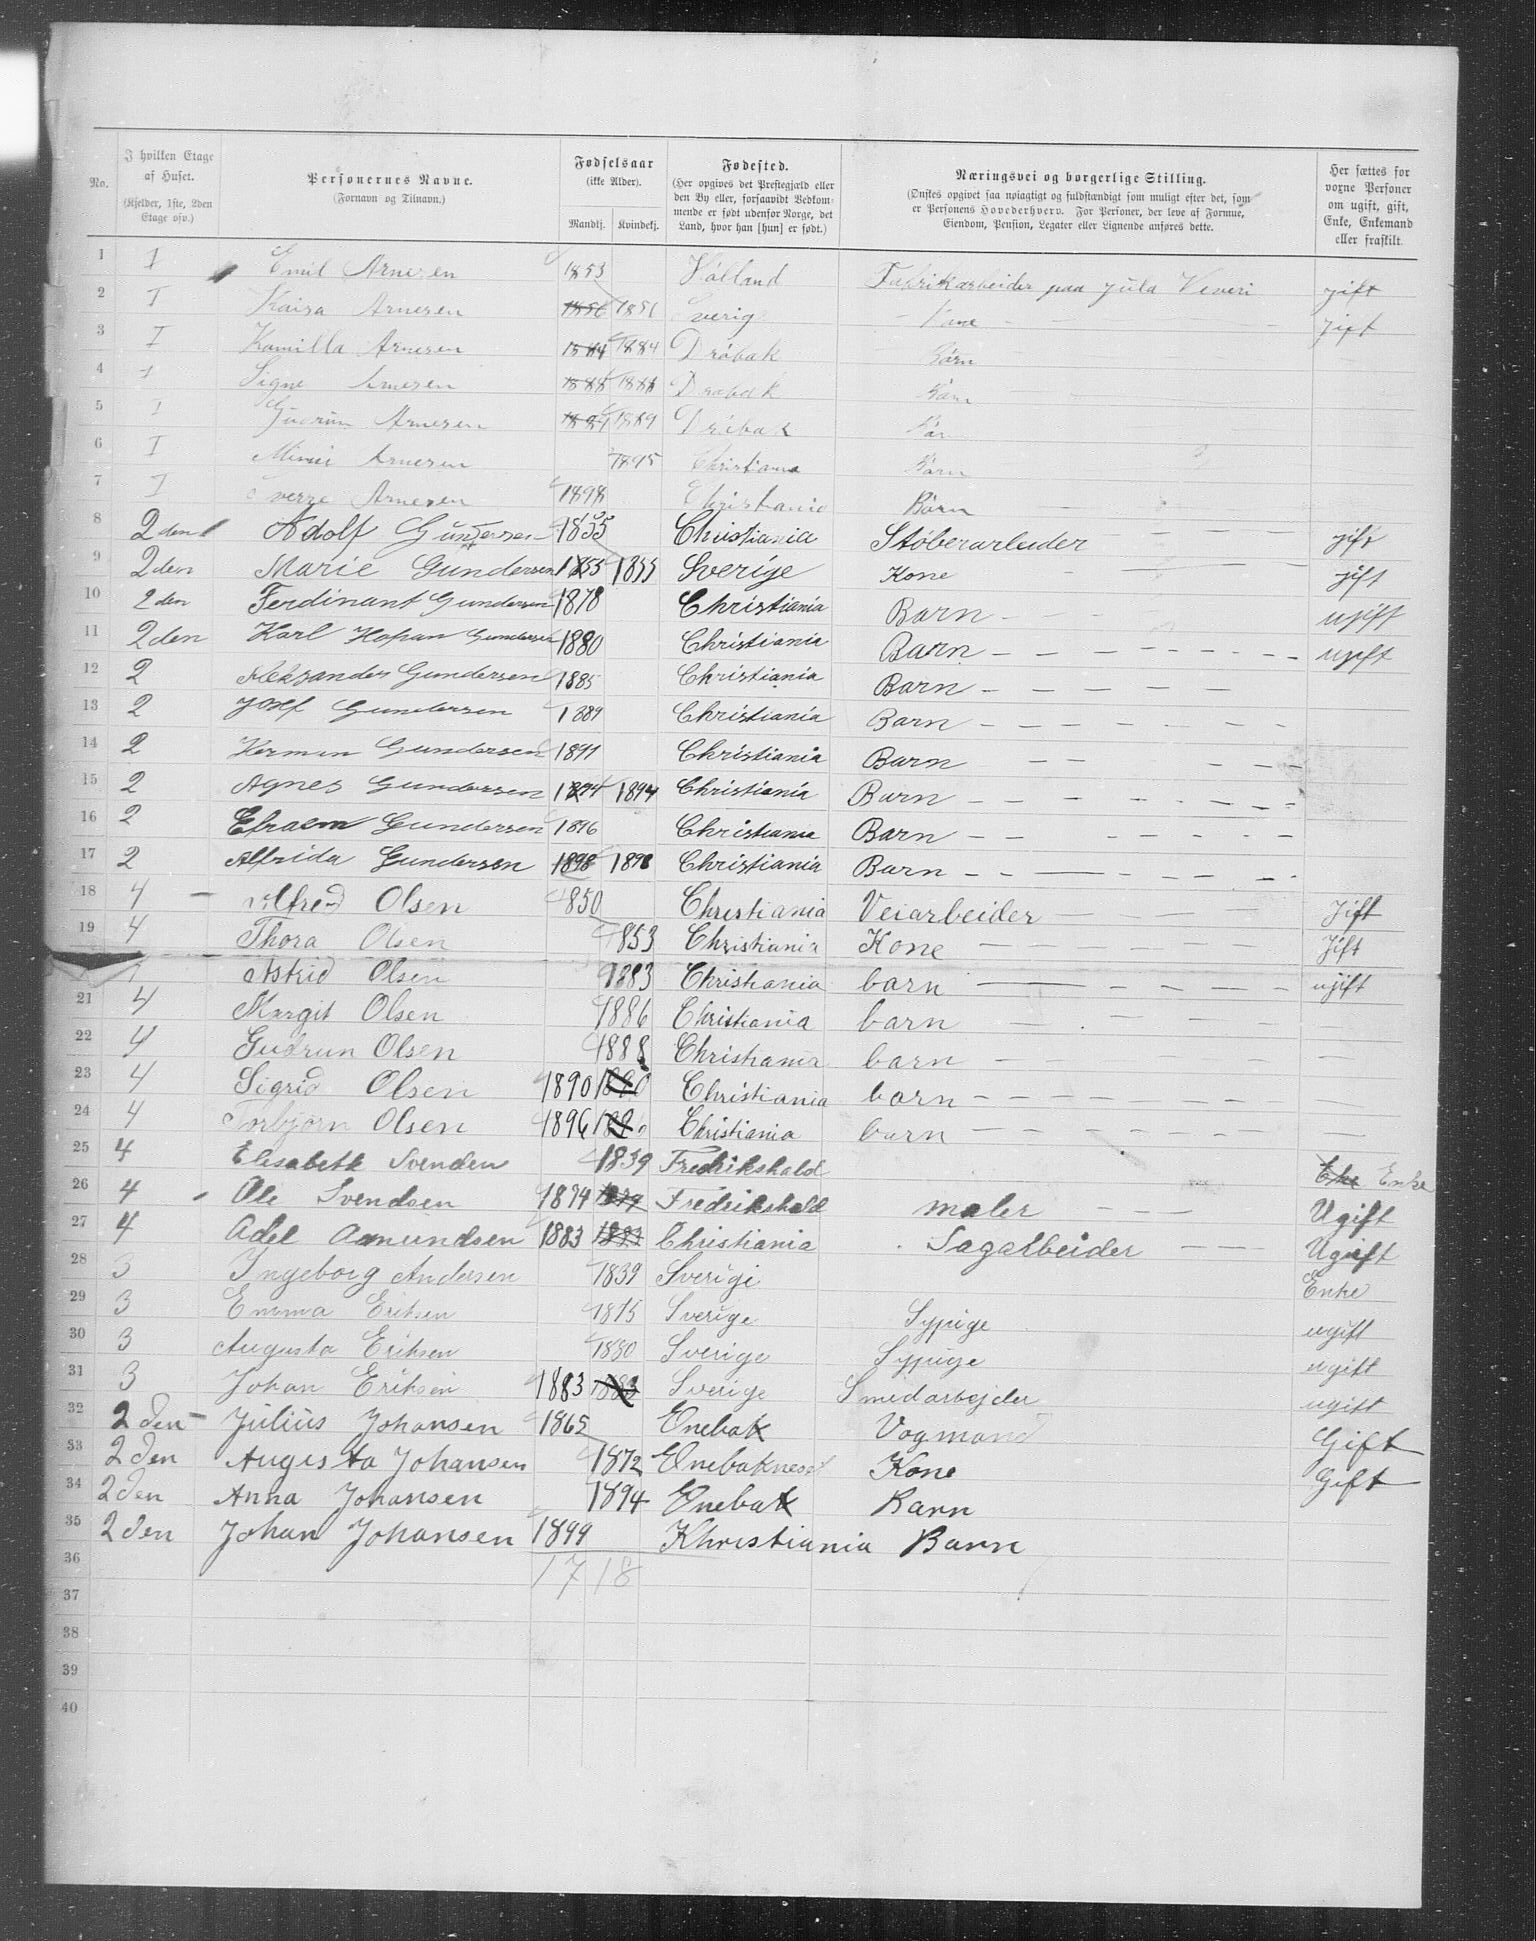 No. | I hvilken Etage af Huset. (Kjelder, 1ste, 2den Etage osv.) | Personernes Navne. (Fornavn og Tilnavn.) | Fødselsaar (ikke Alder). Mandkj. Kvindekj. | Fødested. (Her opgives det Prestegjæld eller den By eller, forsaavidt Vedkommende er født udenfor Norge, det Land, hvor han [hun] er født.) | Næringsvei og borgerlige Stilling. (Ønskes opgivet saa nøiagtigt og fuldstændigt som muligt efter det, som er Personens Hovederhverv. For Personer, der leve af Formue, Eiendom, Pension, Legater eller Lignende anføres dette.) | Her sættes for voxne Personer om ugift, gift, Enke, Enkemand eller fraskilt.
1 I Emil Arnesen 1853 Fabrikarbeider paa Jula Veveri jift
2 I Kaisa Arnesen 1856 1856 Sverig Kone jift
3 I Kamilla Arnesen 1884 1884 Dröbak Barn
4 I Signe Arnesen 1888 1888 Drøbak Barn
5 I Gudrun Arnesen 1889 1889 Dröbak Barn
6 I Arnesen 1895 Christiania Barn
7 I Sverre Arnesen 1898 Christiania Barn
8 2den Adolf Gundersen 1855 Christiania Støberarbeider jift
9 2den Marie Gundersen 1855 1855 Sverige Kone jift
10 2den Ferdinant Gundersen 1878 Christiania Barn ugift
11 2den Karl Gundersen 1880 Christiania Barn ugift
12 2 Aleksander Gundersen 1885 Christiania Barn
13 2 Josef Gundersen 1889 Christiania Barn
14 2 Herman Gundersen 1891 Christiania Barn
15 2 Agnes Gundersen 1894 1894 Christiania Barn
16 2 Efraem Gundersen 1896 Christiania Barn
17 2 Alfrida Gundersen 1898 1898 Christiania Barn
18 4 Alfred Olsen 1850 Christiania Veiarbeider Jift
19 4 Thora Olsen 1853 Christiania Kone Jift
Astrid Olsen 1883 Christiania barn ujift
21 4 Margit Olsen 1886 Christiania barn
22 4 Gudrun Olsen 1888 Christiania barn
23 4 Sigrid Olsen 1890 1890 Christiania barn
24 4 Torbjørn Olsen 1896 Christiania barn
25 4 Elesabeth Svenden 1839 Fredrikshald Enke Enke
26 4 Ole Svendsen 1874 1874 Fredrikshald maler Ugift
27 4 Adel Amundsen 1883 1883 Christiania Sagarbeider Ugift
28 3 Ingeborg Andersen 1839 Sverige Enke
29 3 Emma Eriksen 1875 Sverige Sypige ugift
30 3 Augusta Eriksen 1880 Sverige Sypige ugift
31 3 Johan Eriksen 1883 1883 Sverige Smedarbejder ugift
32 2den Julius Johansen 1865 Enebak Vogmand Gift
33 2den Augusta Johansen 1872 Enebakness Kone Gift
34 2den Anna Johansen 1894 Enebak Barn
35 2den Johan Johansen 1899 Khristiania Barn
36 17 18
37
38
39
40